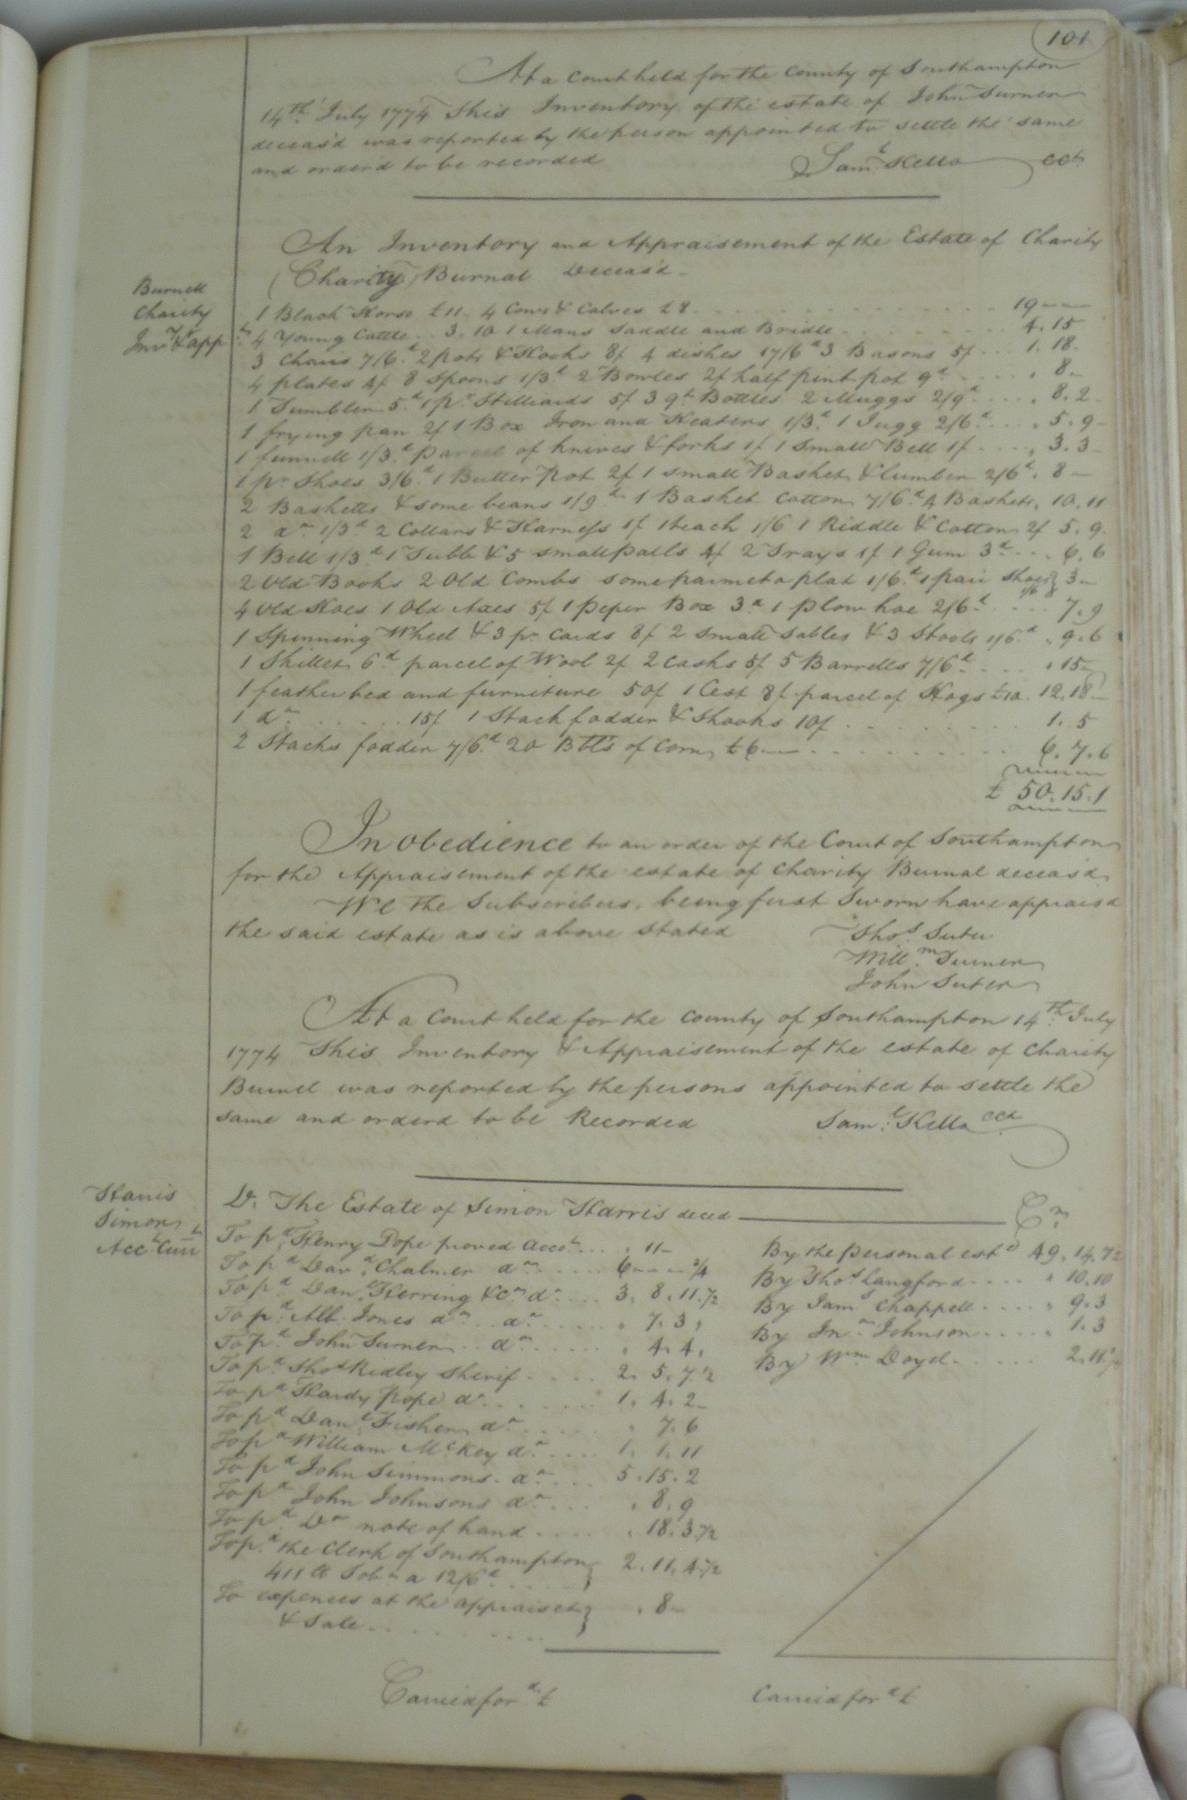 101
At a Court held for the County of Southampton
14th July 1774 This Inventory of the estate of John Turner
deceas'd was reported by the person appointed to settle the same
and orderd to be recorded Saml Kello CCk
An Inventory and Appraisement of the Estate of Charity
(Charity) Burnal Deceas'd
Burnell
Charity
Invy & appt
1 Black Horse £11. 4 Cows & Calves £8 19 --
4 Young Cattle 3.10 1 Mans Saddle and Bridle 4.15
3 Chairs 7/6d 2 pots & Hooks 8/ 4 dishes 17/6d 3 Basons 5/ 1.18
4 plates 4/ 8 Spoons 1/3d 2 Bowles 2/ half pint pot 9d 8 -
1 Tumbler 5d 1 pr Stilliards 5/ 3 qt Bottles 2 Muggs 2/9d 8.2
1 frying pan 2/ 1 Box Iron and Heaters 1/3d 1 Jugg 2/6d 5.9
1 funnell 1/3d parcel of knives & forks 1/ 1 Small Bell 1/ 3.3
1 pr Shoes 3/6d 1 Butter Pot 2/ 1 small Basket & lumber 2/6d 8 -
2 Basketts & some beans 1/9d 1 Basket Cotton 7/6d 4 Baskets 10.11
2 do 1/3d 2 Collars & Harness 1/ 1 teach 1/6 1 Riddle & Cotton 2/ 5.9
1 Bell 1/3d 1 Tubb & 5 small pails 4/ 2 Trays 1/ 1 Gum 3d 6.6
2 Old Books 2 Old Combs some parmeto plat 1/6d 1 pair Shoes 1/6 3 -
4 Old Hoes 1 Old Axes 5/ 1 Peper Box 3d 1 plow hoe 2/6d 7.9
1 Spinning Wheel & 3 pr Cards 8/ 2 small Tables & 3 Stools 1/6d 9.6
1 Skillet 6d parcel of Wool 2/ 2 Casks 5/ 5 Barrells 7/6d 15 -
1 feather bed and furniture 50/ 1 Cest 8/ parcel of Hogs £10. 12.18 -
1 do 15/ 1 Stack fodder & Shooks 10/ 1.5
2 Stacks fodder 7/6d 20 Bbls of Corn £6 -- 6.7.6
£ 50.15.1
In obedience to an order of the Court of Southampton
for the Appraisement of the estate of Charity Burnal deceas'd
We the Subscribers, being first Sworn have appraisd
the said estate as is above Stated Thos Suter
Willm Turner
John Suter
At a Court held for the County of Southampton 14th July
1774 This Inventory & Appraisement of the estate of Charity
Burnel was reported by the persons appointed to settle the
same and orderd to be Recorded Saml Kello CCk
Harris
Simon
Acct Currt
Dr. The Estate of Simon Harris deced Cr
To pd Henry Pope proved Acct 11 -
To pd Davd Chalmer do 6 -- 3/4
To pd Danl Herring & Co do 3.8.11 1/2
To pd Alb. Jones do do 7.3
To pd John Turner do 4.4
To pd Thos Ridley Sherif 2.5.7 1/2
To pd Hardy Pope do 1.4.2
To pd Danl Fisher do 7.6
To pd William McKey do 1.1.11
To pd John Simmons do 5.15.2
To pd John Johnsons do 8.9
To pd Do note of hand 18.3 1/2
To pd the Clerk of Southampton
411 lb Tobo a 12/6d 2.11.4 1/2
To expences at the appraiset
& Sale 8 -
Carried ford £
By the personal estd 49.14.7 1/2
By Thos Langford 10.10
By Jams Chappell 9.3
By Jno Johnson 1.3
By Wm Doyel 2.11 1/2
Carried ford £